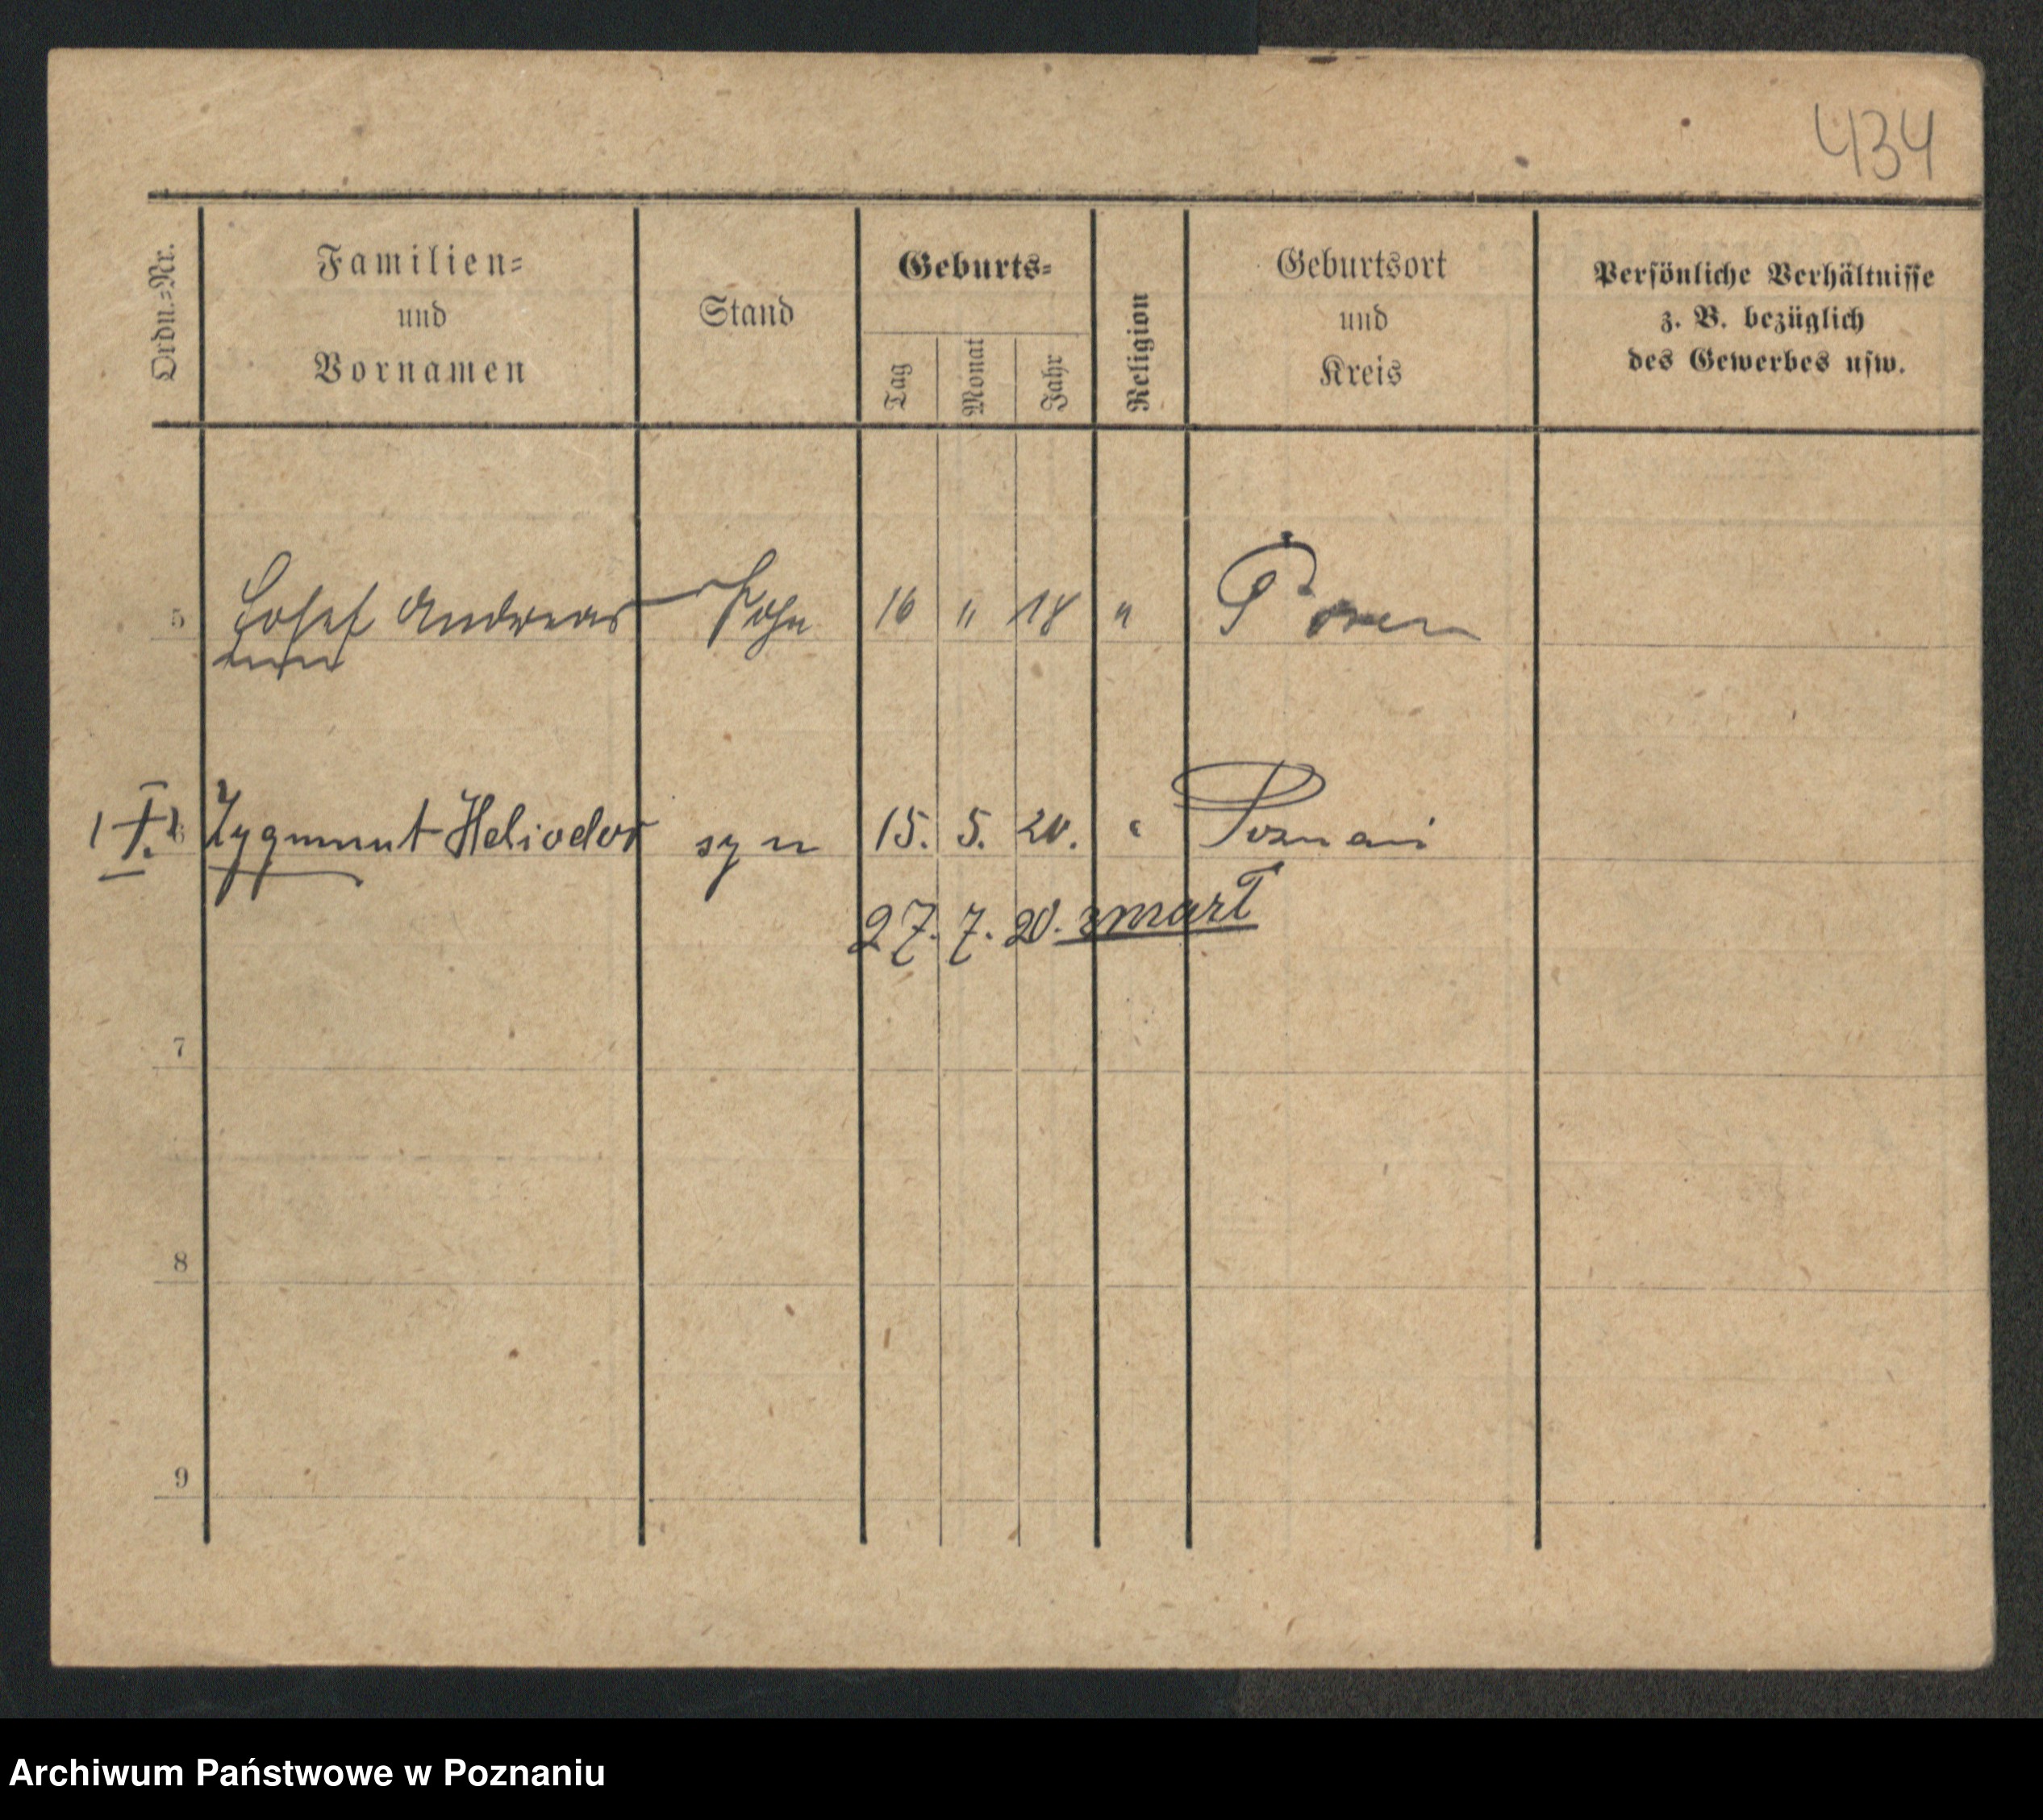 434
Ordn.-Nr.
Familien-
und
Vornamen
Stand
Geburts-
Tag
Monat
Jahr
Religion
Geburtsort
und
Kreis
Persönliche Verhältnisse
z. B. bezüglich
des Gewerbes usw.
5 Josef Andreas Sohn 16 " 18 " Posen
6 Zygmunt Heliodor syn 15. 5. 20. " Poznań
27. 7. 20. zmarł
7
8
9
Archiwum Państwowe w Poznaniu